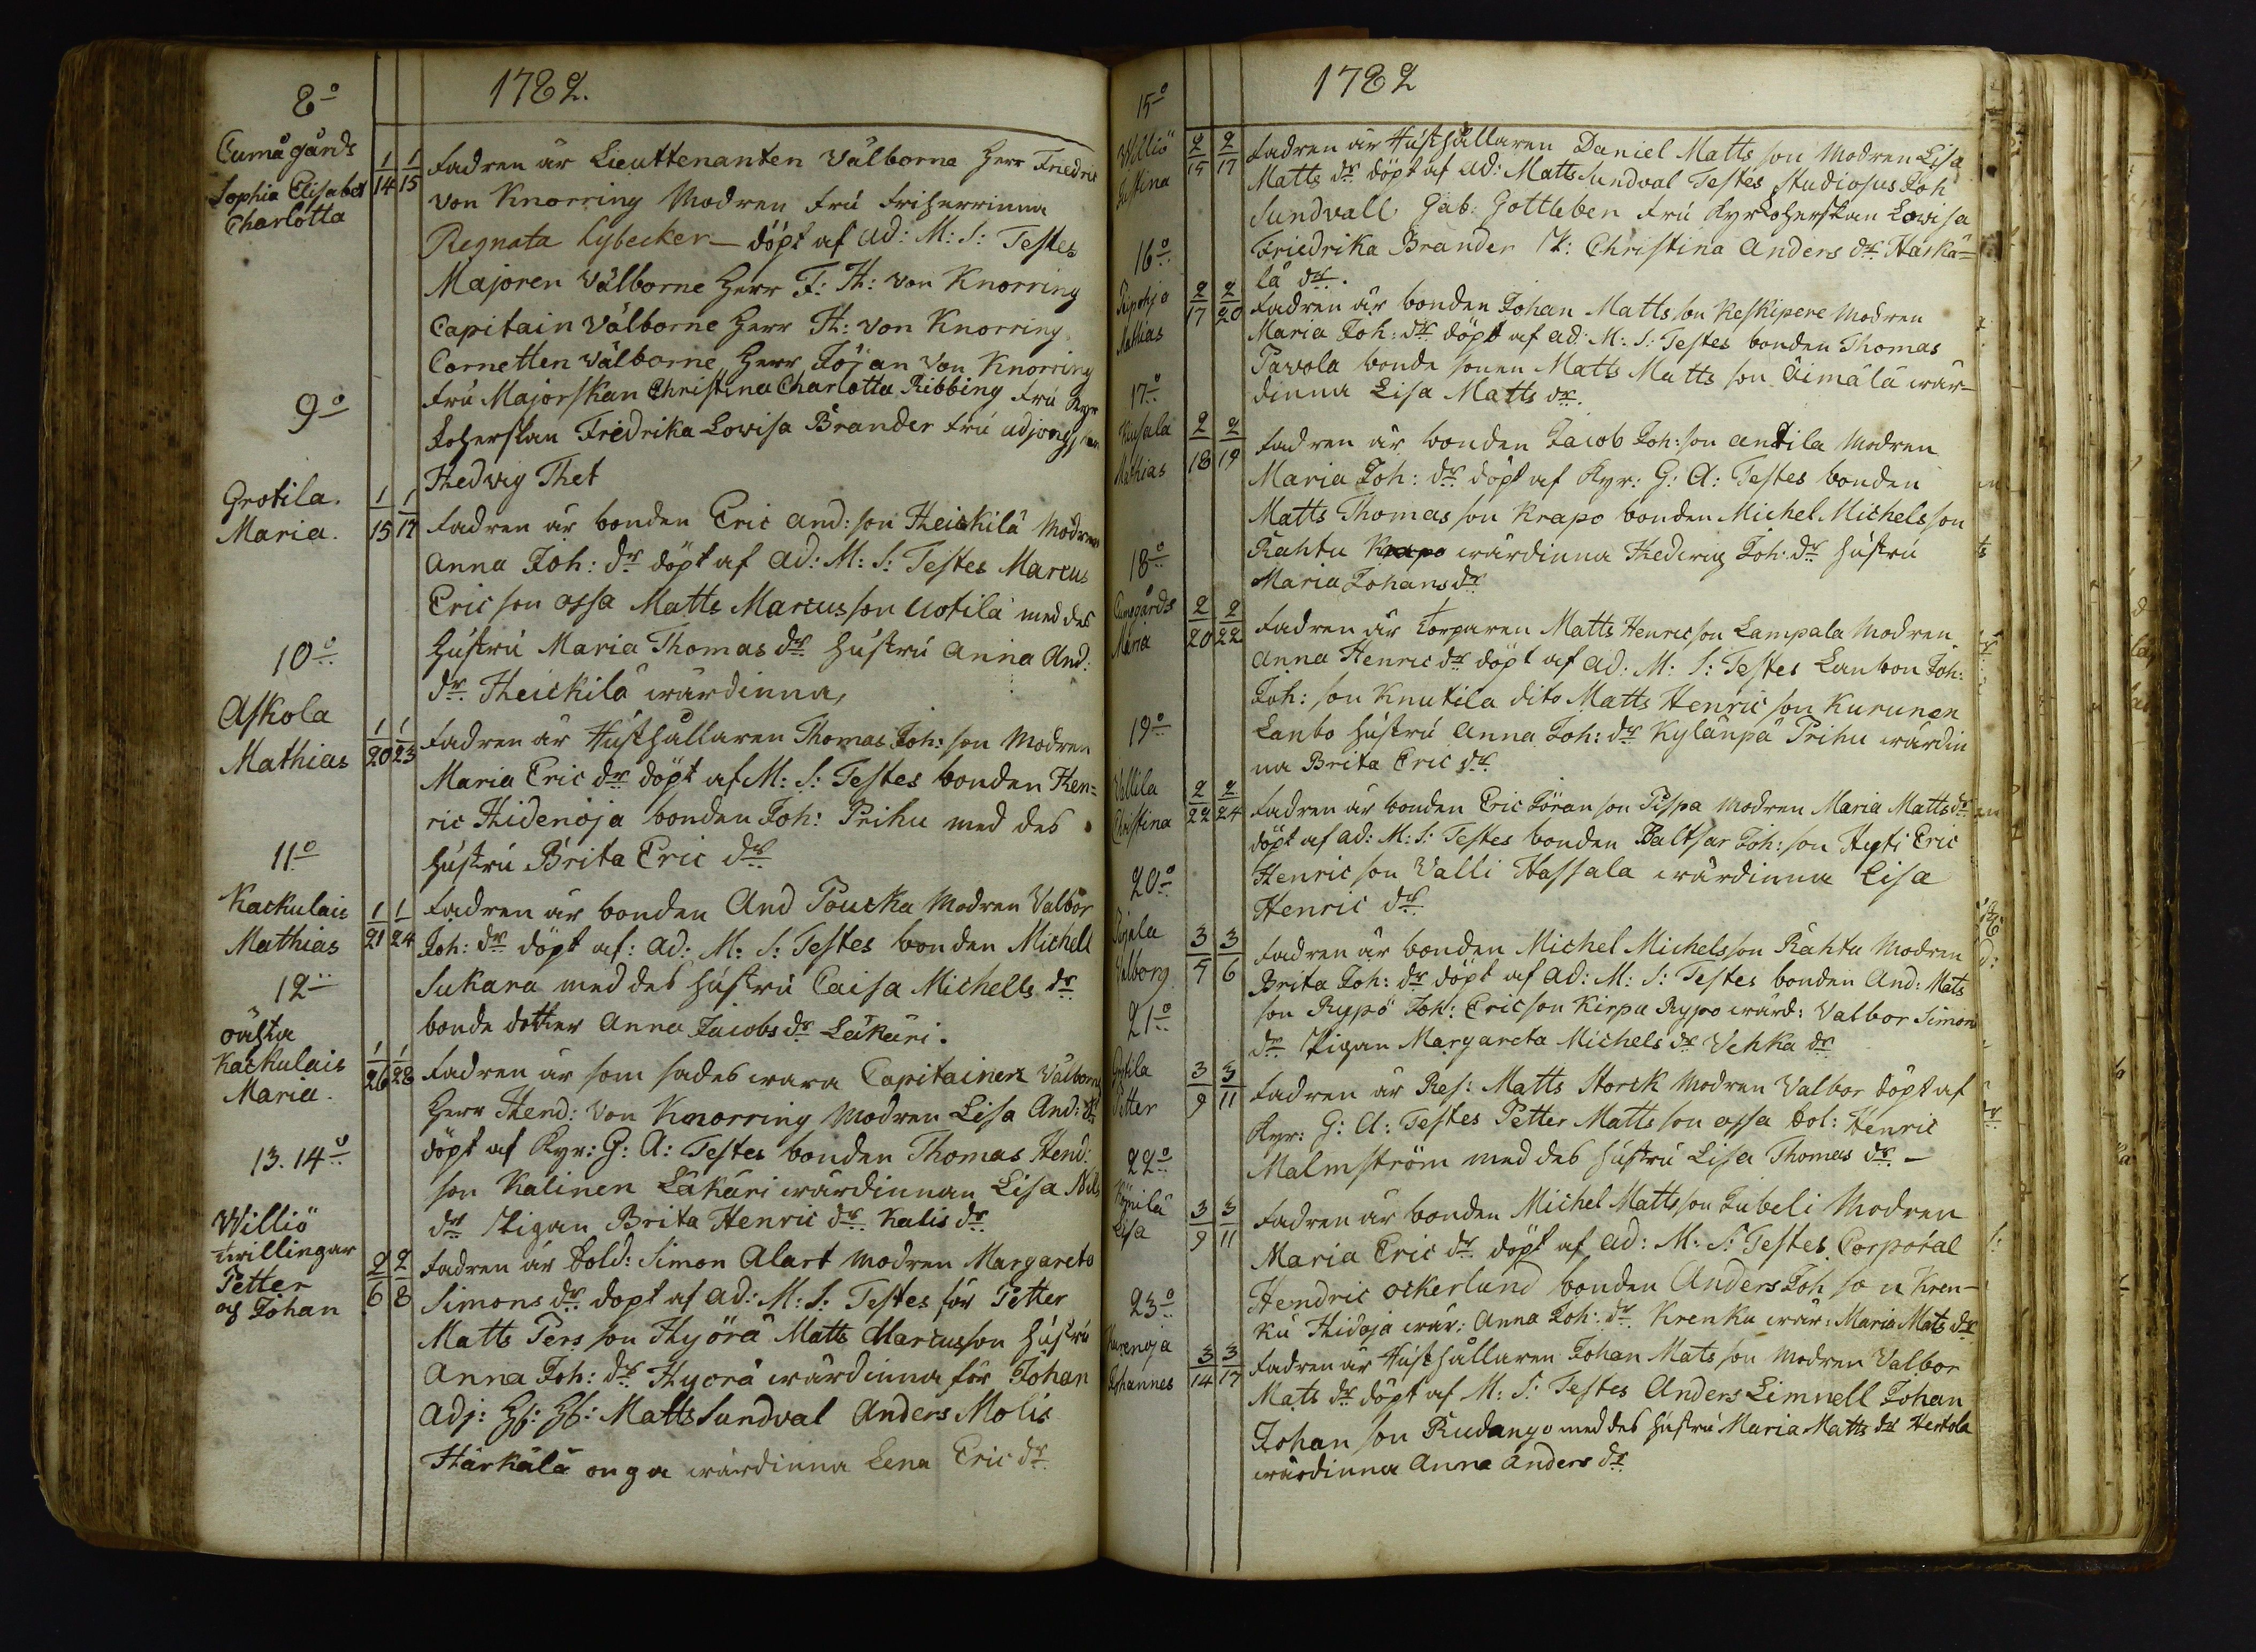 1782.
8o
Cumå gårds
Sophia Elisabet
Charlotta
1/14 1/15
Fadren är Lieuttenanten Välborne Herr Friedric
von Knorring Modren Fru Friherrinna
Regnata Lybecker döpt af Ad: M: S: Testes
Majoren Välborne Herr F: H: von Knorring
Capitain Välborne Herr H: von Knorring
Cornetten Välborne Herr Jöjan von Knorring
Fru Majorskan Christina Charlotta Ribbing Fru Kyr
koherskan Fredrika Lovisa Brander Fru
Hedvig Thet
9o
Grotila.
Maria.
1/15 1/17
Fadren är bonden Eric And: son Heickilä Modren
Anna Joh: dr döpt af Ad: M: S: Testes Marcus
Ericson ossa Matts Marcusson Uotila med des
hustru Maria Thomas dr hustru Anna And:
dr Heickilä wärdinna,
10o
Askola
Mathias
1/20 1/23
Fadren är Hushållaren Thomas Joh: son Modren
Maria Eric dr döpt af M: S: Testes bonden Hen=
ric Hidenoja bonden Joh: Prihu med des
hustru Brita Eric dr
11o
Kackulais
Mathias
1/21 1/24
Fadren är bonden And Poucka Modren Valbor
Joh: dr döpt af: Ad: M: S: Testes bonden Michell
Sukara med des hustru Caisa Michells dr
bonde dotter Anna Jacobs dr Läkäri.
12
öästa
Kackulais
Maria.
1/26 1/28
Fadren är som sades wara Capitainen Välborne
Herr Hend: von Knorring Modren Lisa And: dr
döpt af Kyr: G: A: Testes bonden Thomas Hend:
son Kalinen Läkäri wärdinnan Lisa Nils
dr Pigan Brita Henric dr Kalis dr
13. 14o
Williö
twillingar
Petter
och Johan
2/6 2/8
Fadren är Sold: Simon Alart Modren Margareta
Simons dr döpt af Ad: M: S: Testes för Petter
Matts Pers son Hyörä Matts Marcusson hustru
Anna Joh: dr Hyörä wärdinna för Johan
Adj: Matts Sundval Anders Molis
Härkälä onga wärdinna Lena Eric dr
1782
15o
Williö
Justina
2/15 2/17
Fadren är Hushållaren Daniel Matts son Modren Lisa
Matts dr döpt af Ad: Matts Sundval Testes Studiosus Joh
Sundvall Gab: Gottleben Fru Kyrkoherskan Lovisa
Friedrika Brander P: Christina Anders dr Härkä=
lä dr.
16o
Pipohja
Mathias
2/17 2/20
Fadren är bonden Johan Matts son Keskipere Modren
Maria Joh: dr döpt af Ad: M: S: Testes bonden Thomas
Pavola bonde sonen Matts Matts son Äimälä wär-
dinna Lisa Matts dr.
17o
Kusala
Mathias
2/18 2/19
Fadren är bonden Jacob Joh: son Antila Modren
Maria Joh: dr döpt af Kyr: G: A: Testes bonden
Matts Thomas son Krapo bonden Michel Michels son
Rahtu Krapo wärdinna Hedwig Joh: dr hustru
Maria Johans dr
18o
Cumogårds
Maria
2/20 2/22
Fadren är Torparen Matts Henricson Lampala Modren
Anna Henric dr döpt af Ad: M: S: Testes Lanbon Joh:
Joh: son Knutila dito Matts Henric son Kurunen
Lanbo hustru Anna Joh: dr Kylänpä Prihu wärdin
na Brita Eric dr
19o
Vallila
Christina
2/22 2/24
Fadren är bonden Eric Jöran son Pispa Modren Maria Matts dr
döpt af Ad: M: S: Testes bonden Baltsar Joh: son Hyti Eric
Henric son Valli Hassala wärdinna Lisa
Henric dr
20o
Valborg
3/5 3/6
Fadren är bonden Michel Michelsson Rahtu Modren
Brita Joh: dr döpt af Ad: M: S: Testes bonden And: Mats
son Rypö Joh: Ericson Kirpu Rypo wärd: Valbor Simons
dr Pigan Margareta Michels dr Vehka dr
21o
Petter
3/9 3/11
Fadren är Res: Matts Storck Modren Valbor döpt af
Kyr: G: A: Testes Petter Matts son ossa Sol: Henric
Malmström med des hustru Lisa Thomas dr -
22o
Lisa
3/9 3/11
Fadren är bonden Michel Matts son Jubeli Modren
Maria Eric dr döpt af Ad: M: S: Testes Corporal
Hendric ockerlund bonden Anders Joh so n Kren-
ku Hidoja wär: Anna Joh: dr Krenku wär: Maria Mats dr
23o
Johannes
3/14 3/17
Fadren är Hushållaren Johan Mats son Modren Valbor
Mats dr döpt af M: S: Testes Anders Limnell Johan
Johan son Rudanyo med des hustru Maria Matts dr Hertola
wärdinna Anna Anders dr